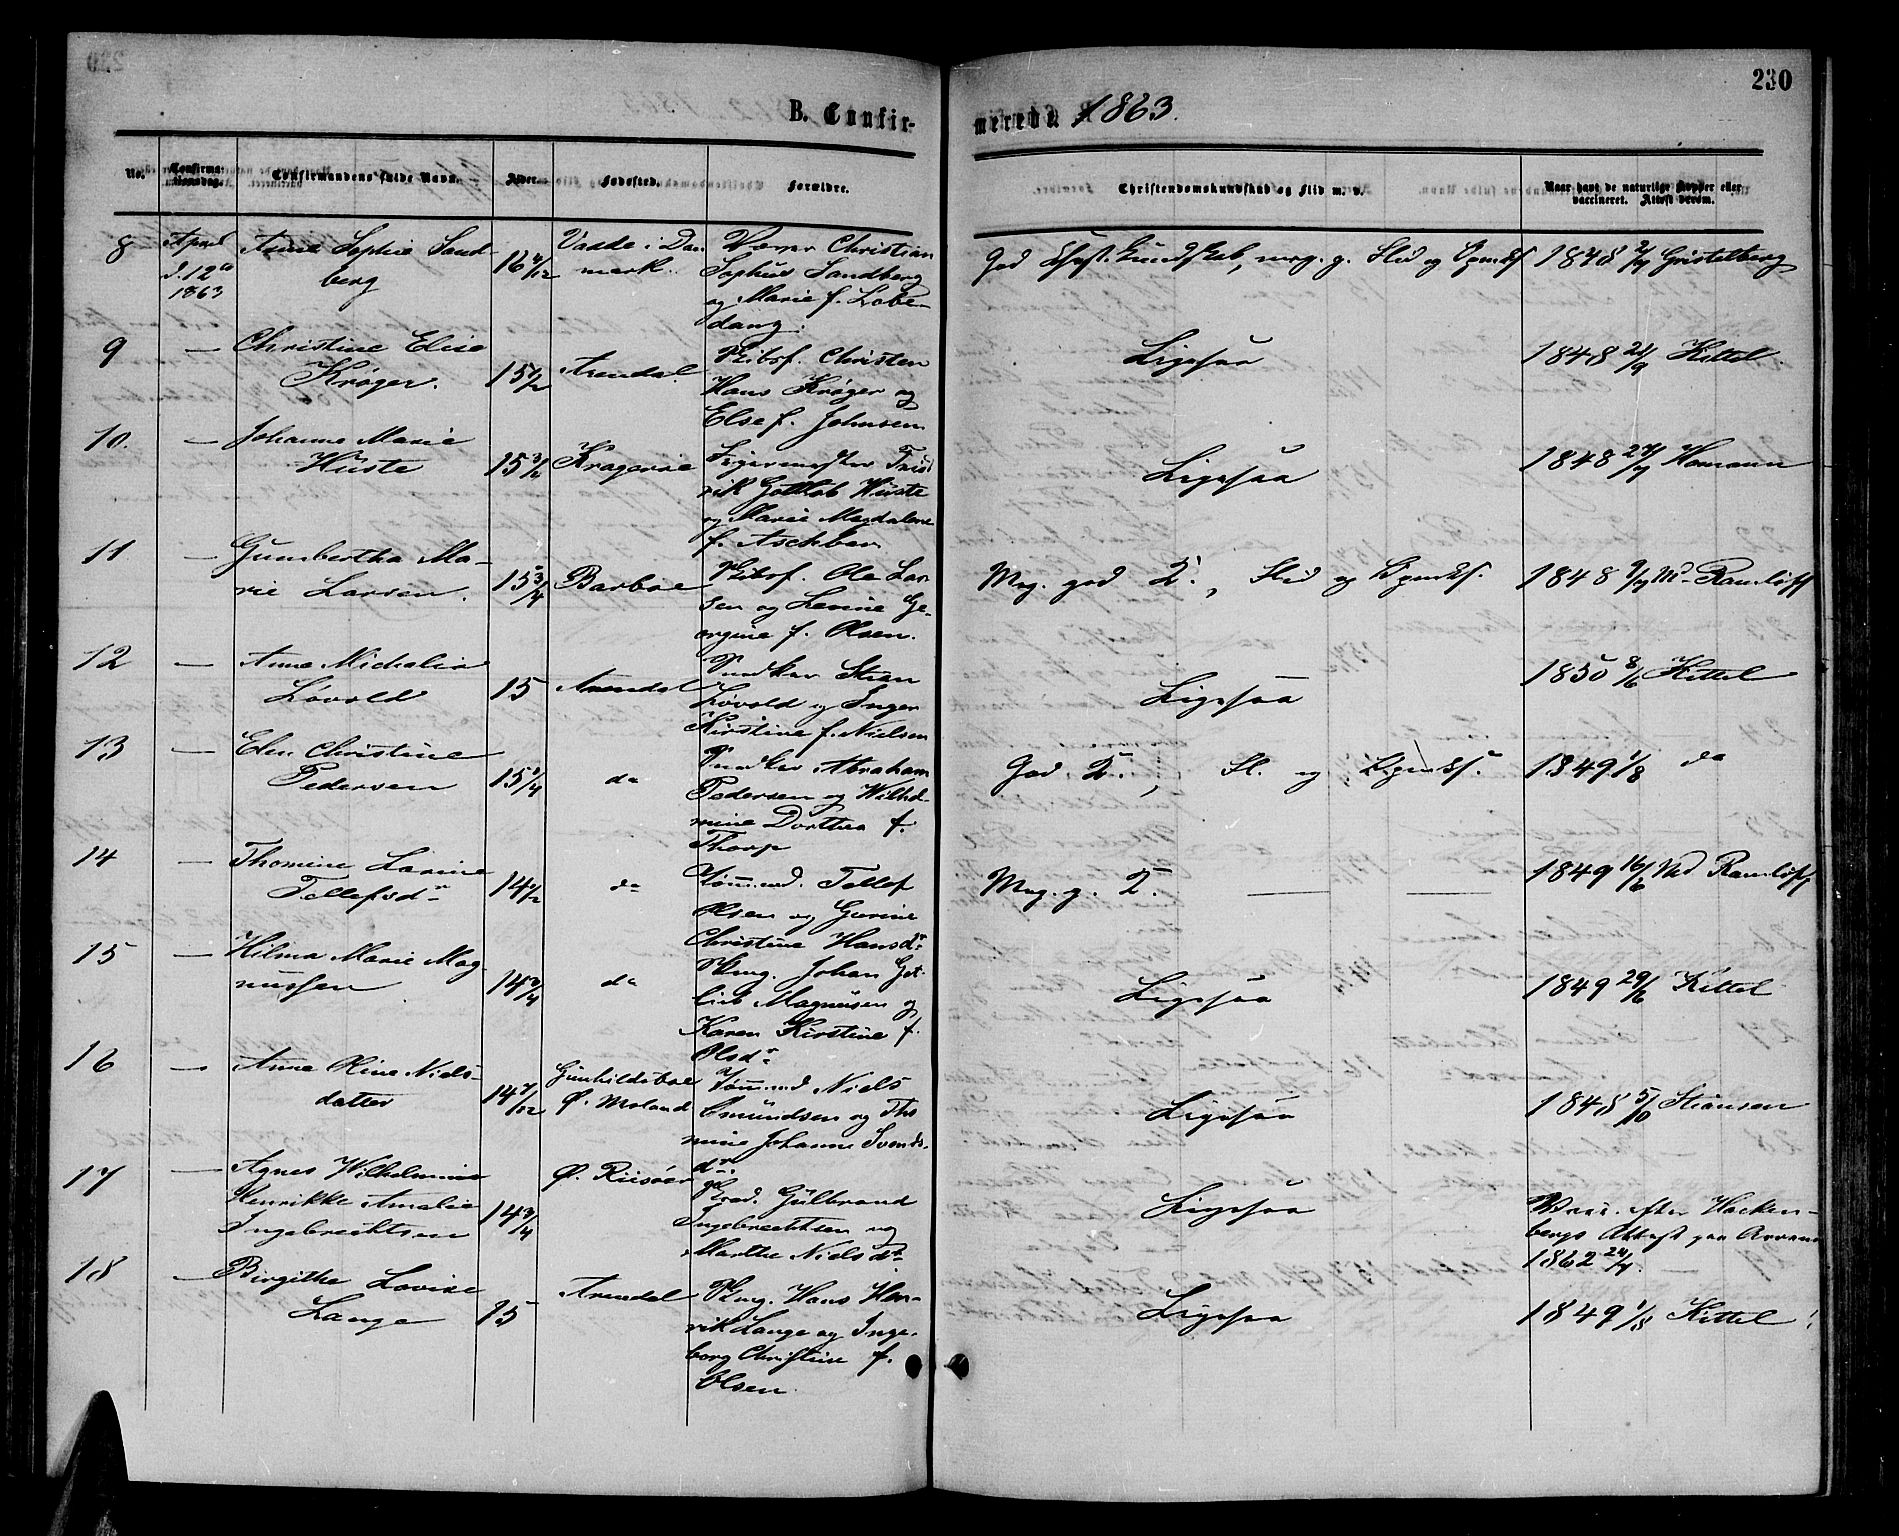 230
B. Confirmerede 1863.
No. Confirmationsdag. Confirmandens fulde Navn. Alder. Fødested. Forældre. Christendomskundskab og Flid m. v. Naar havt de naturlige Kopper eller vaccineret. Attest derom.
8 April d. 12te 1863 Anna Sophie Sandberg 16 Danmark. Christian Sophus Sandberg og Marie f. God Christ. Kundskab, meg. g. Flid og 1848
9 — Christine Elise Krøger. 15 Arendal. Skibsf. Christen Hans Krøger og Else f. Johnsen Ligesaa 1848 Kittel
10. — Johanne Marie Wüste 15 Kragerøe Gottlob Wüste og Marie Magdalene f. Ligesaa 1848 Homann
11 — Gumbertha Marie Larsen. 15 3/4 Barboe Skibsf. Ole Larsen og Levine Georgine f. Olsen. Meg. god K., Flid og 1848 Md. Ramløff
12 — Anne Michalia Løvold 15 Arendal Løvold og Inger Kirstine f. Nielsen Ligesaa 1850 8/6 Kittel
13 — Christine Pedersen 15 1/4 do Abraham Pedersen og Wilhelmine Dorthea f. Thorp God K., Fl. og 1849 1/8 do
14 — Thomine Lavine Tellefsdr 14 1/2 do Tømmmd. Tellef Olsen og Gurine Christine Hansdr. Meg. g. K. — — 1849 16/6 Md Ramløff
15 — Hilma Marie Magnussen 14 3/4 do Johan Gotlieb Magnusen og Karen Kirstine f. Olsdr. Ligesaa 1849 29/6 Kittel
16 — Anne Oline Nielsdatter 14 7/12 Gunhildsboe Ø. Moland Tømmmd Niels Omundsen og Thomine Johanne Svendsdr. Ligesaa 1848 5/10 Stiansen
17 — Agnes Wilhelmine Henrikke Amalie Ingebrechtsen 14 3/4 Ø. Riisøer Gulbrand Ingebrechtsen og Marthe Nielsdr. Ligesaa Vacc. efter Hackenbergs Attest paa 1862 24/4.
18 — Birgithe Lovise Lange 15 Arendal Hans Henrik Lange og Ingeborg Christine f. Olsen. Ligesaa 1849 1/8 Kittel